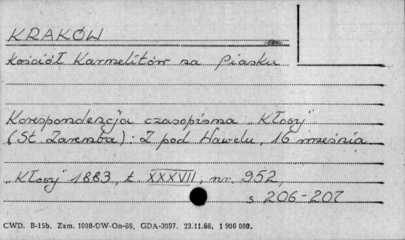 KRAKÓW
Kościół Karmelitów na Piasku
Korespondencja czasopisma „Kłosy"
(St. Zaremba): Z pod Wawelu, 16 września.
„Kłosy" 1883, t. XXXVII, nr. 952,
s 206-207
CWD. B-15b. Zam. 1008-DW-On-66, GDA-3097. 23.11.66, 1 906 000.